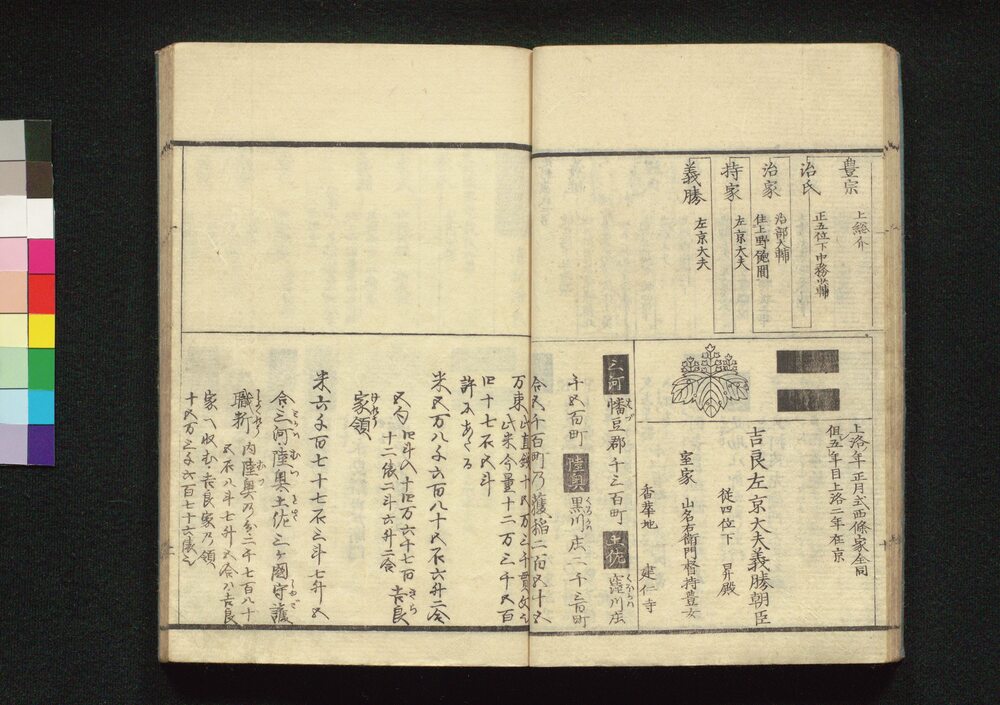 豊宗
上総介
治氏
正五位下中務少輔
治家
治部大輔
住上野飽間
持家
左京大夫
義勝
左京大夫
上洛年正月式西條家全同
但五年目上洛二年在京
吉良左京大夫義勝朝臣
従四位下 昇殿
室家 山名右衛門督持豊女
香華地 建仁寺
三河 幡豆郡千三百町 土佐 窪川庄
千五百町 陸奥 黒川庄二千三百町
合五千百町乃穫稲二百五十五
万束此直銭十五万三千貫文之
此米今量十二万三千五百
旧十七石五斗
許にあたる
米五万八千六百八十石六升二合
五勺旧斗の十四万六千七百
十二俵二斗六升二合 吉良
家領
米六千百七十七石三斗七升五
合三河陸奥土佐三ヶ国守護
職料 内陸奥乃分二千七百八十
五石八斗七升五合ハ吉良
家へ収む吉良家乃領
十五万三千六百七十六俵之